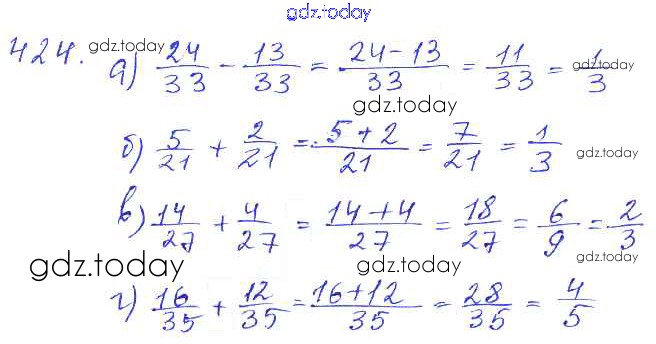 gdz.today
424. gdz.today а) 24/33 - 13/33 = 24-13/33 = 11/33 = 1/3 gdz.today
gdz.today
б) 5/21 + 2/21 = 5+2/21 = 7/21 = 1/3 gdz.today
в) 14/27 + 4/27 = 14+4/27 = 18/27 = 6/9 = 2/3
gdz.today gdz.today gdz.today
г) 16/35 + 12/35 = 16+12/35 = 28/35 = 4/5